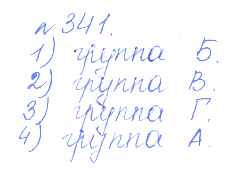 №341.
1) группа Б.
2) группа В.
3) группа Г.
4) группа А.